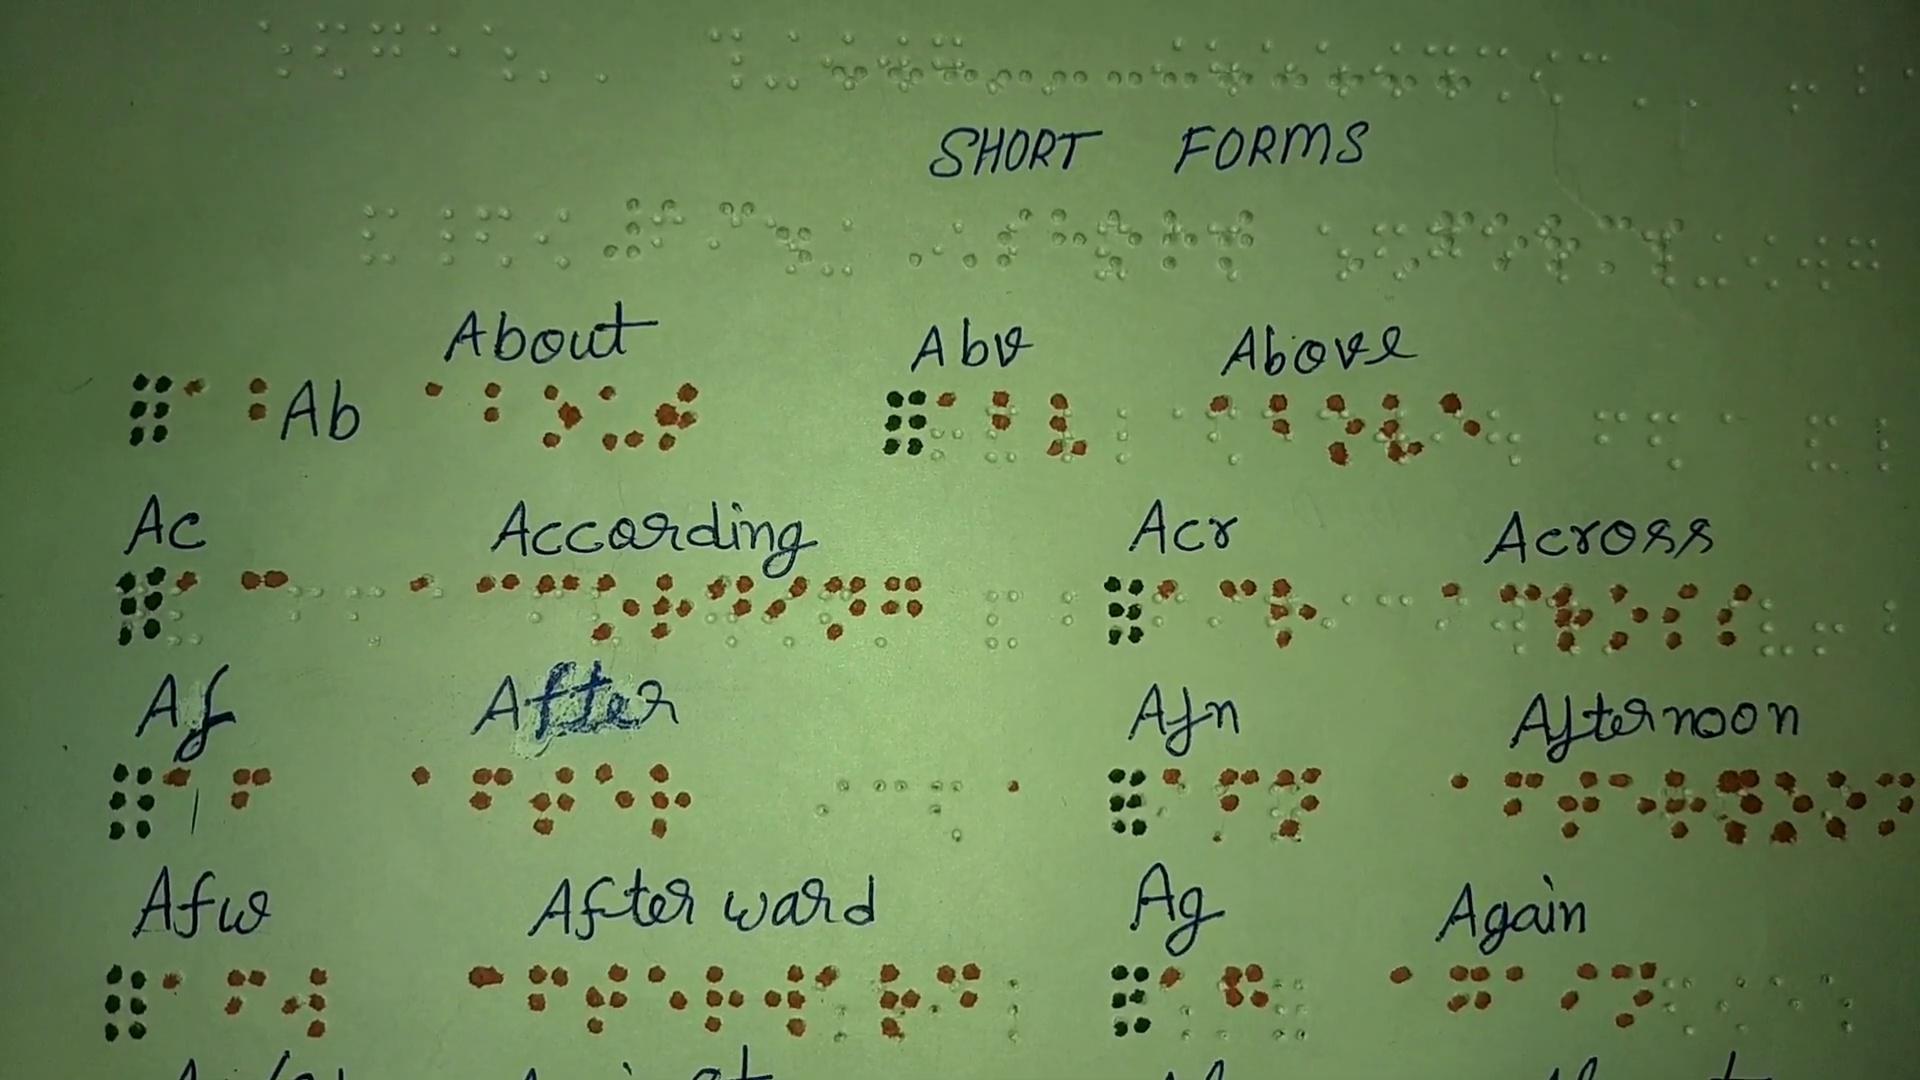 SHORT FORMS
Ab About Abv Above
Ac According Acr Across
Af After Afn Afternoon
Afw After ward Ag Again